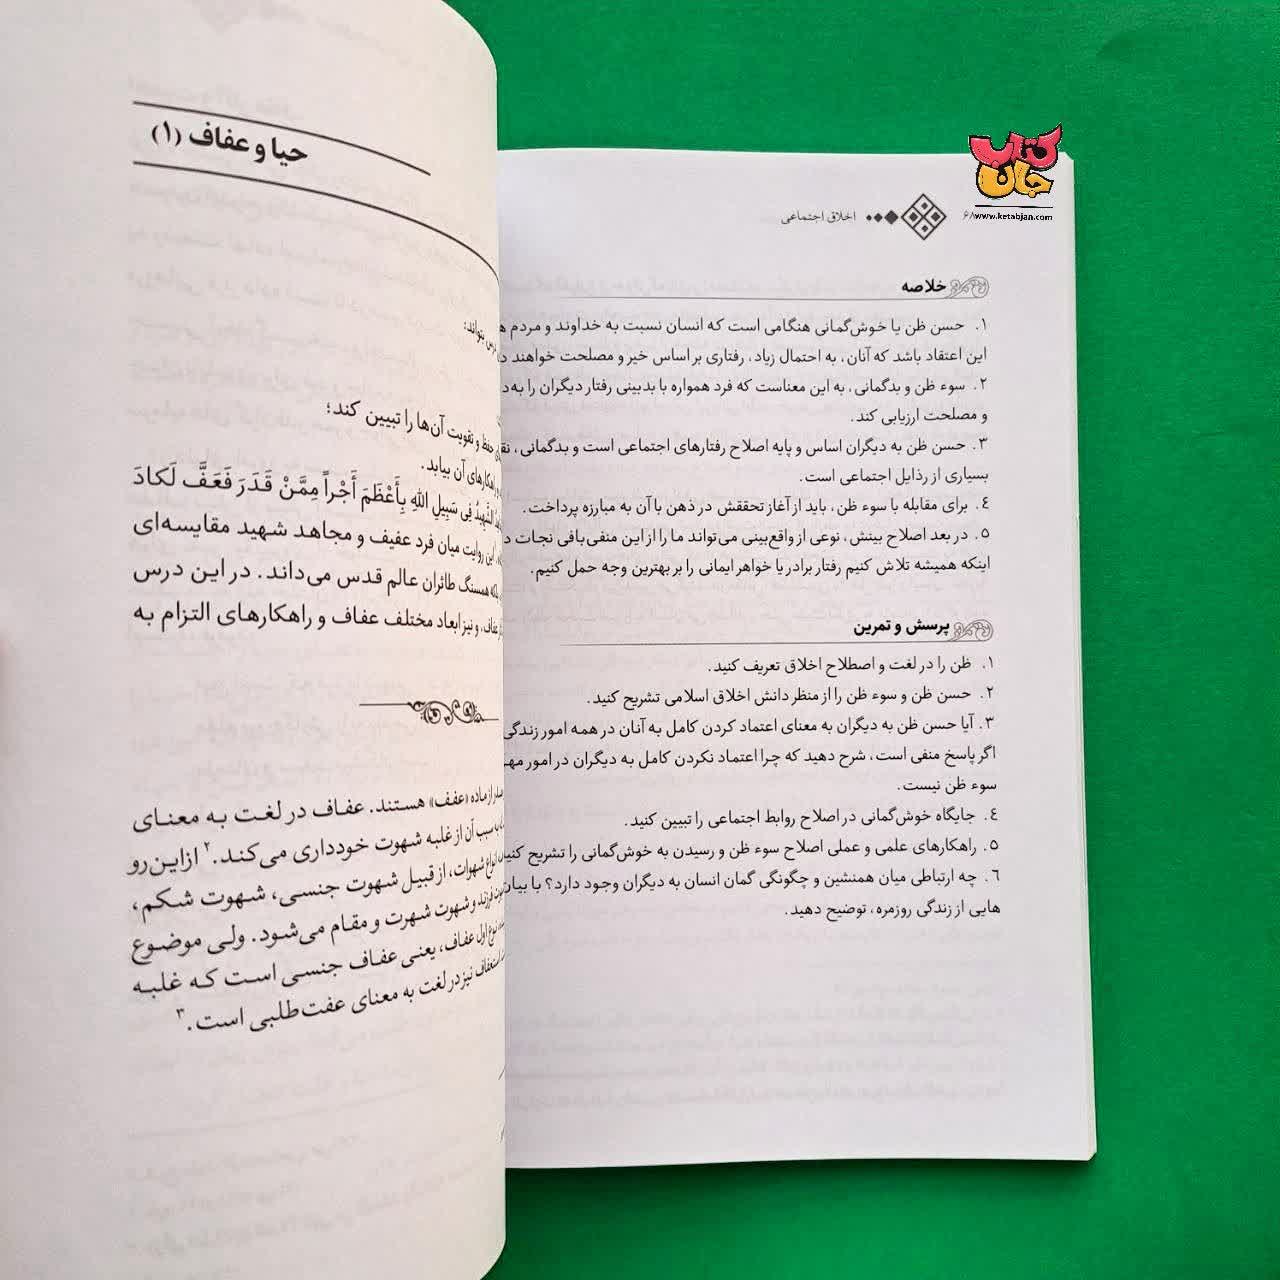 کتاب
جان
www.ketabjan.com
۶۸
اخلاق اجتماعی
خلاصه
۱. حسن ظن یا خوش‌گمانی هنگامی است که انسان نسبت به خداوند و مردم
این اعتقاد باشد که آنان، به احتمال زیاد، رفتاری بر اساس خیر و مصلحت خواهند
۲. سوء ظن و بدگمانی، به این معناست که فرد همواره با بدبینی رفتار دیگران را
و مصلحت ارزیابی کند.
۳. حسن ظن به دیگران اساس و پایه اصلاح رفتارهای اجتماعی است و بدگمانی،
بسیاری از رذایل اجتماعی است.
۴. برای مقابله با سوء ظن، باید از آغاز تحققش در ذهن با آن به مبارزه پرداخت.
۵. در بعد اصلاح بینش، نوعی از واقع‌بینی می‌تواند ما را از این منفی‌بافی نجات
اینکه همیشه تلاش کنیم رفتار برادر یا خواهر ایمانی را بر بهترین وجه حمل کنیم.
پرسش و تمرین
۱. ظن را در لغت و اصطلاح اخلاق تعریف کنید.
۲. حسن ظن و سوء ظن را از منظر دانش اخلاق اسلامی تشریح کنید.
۳. آیا حسن ظن به دیگران به معنای اعتماد کردن کامل به آنان در همه امور زندگی
اگر پاسخ منفی است، شرح دهید که چرا اعتماد نکردن کامل به دیگران در امور
سوء ظن نیست.
۴. جایگاه خوش‌گمانی در اصلاح روابط اجتماعی را تبیین کنید.
۵. راهکارهای علمی و عملی اصلاح سوء ظن و رسیدن به خوش‌گمانی را تشریح
۶. چه ارتباطی میان همنشین و چگونگی گمان انسان به دیگران وجود دارد؟ با
هایی از زندگی روزمره، توضیح دهید.
حیا و عفاف (۱)
درس بتواند:
حفظ و تقویت آن‌ها را تبیین کند؛
و راهکارهای آن بیابد.
الشَّهِيدُ فِي سَبِيلِ اللهِ بِأَعْظَمَ أَجْراً مِمَّنْ قَدَرَ فَعَفَّ لَكادَ
این روایت میان فرد عفیف و مجاهد شهید مقایسه‌ای
بلکه همسنگ طائران عالم قدس می‌داند. در این درس
عفاف، و نیز ابعاد مختلف عفاف و راهکارهای التزام به
از ماده «عفف» هستند. عفاف در لغت به معنای
به سبب آن از غلبه شهوت خودداری می‌کند.۲ ازاین‌رو
انواع شهوات، از قبیل شهوت جنسی، شهوت شکم،
فرزند و شهوت شهرت و مقام می‌شود. ولی موضوع
نوع اول عفاف، یعنی عفاف جنسی است که غلبه
استعفاف نیز در لغت به معنای عفت‌طلبی است.۳